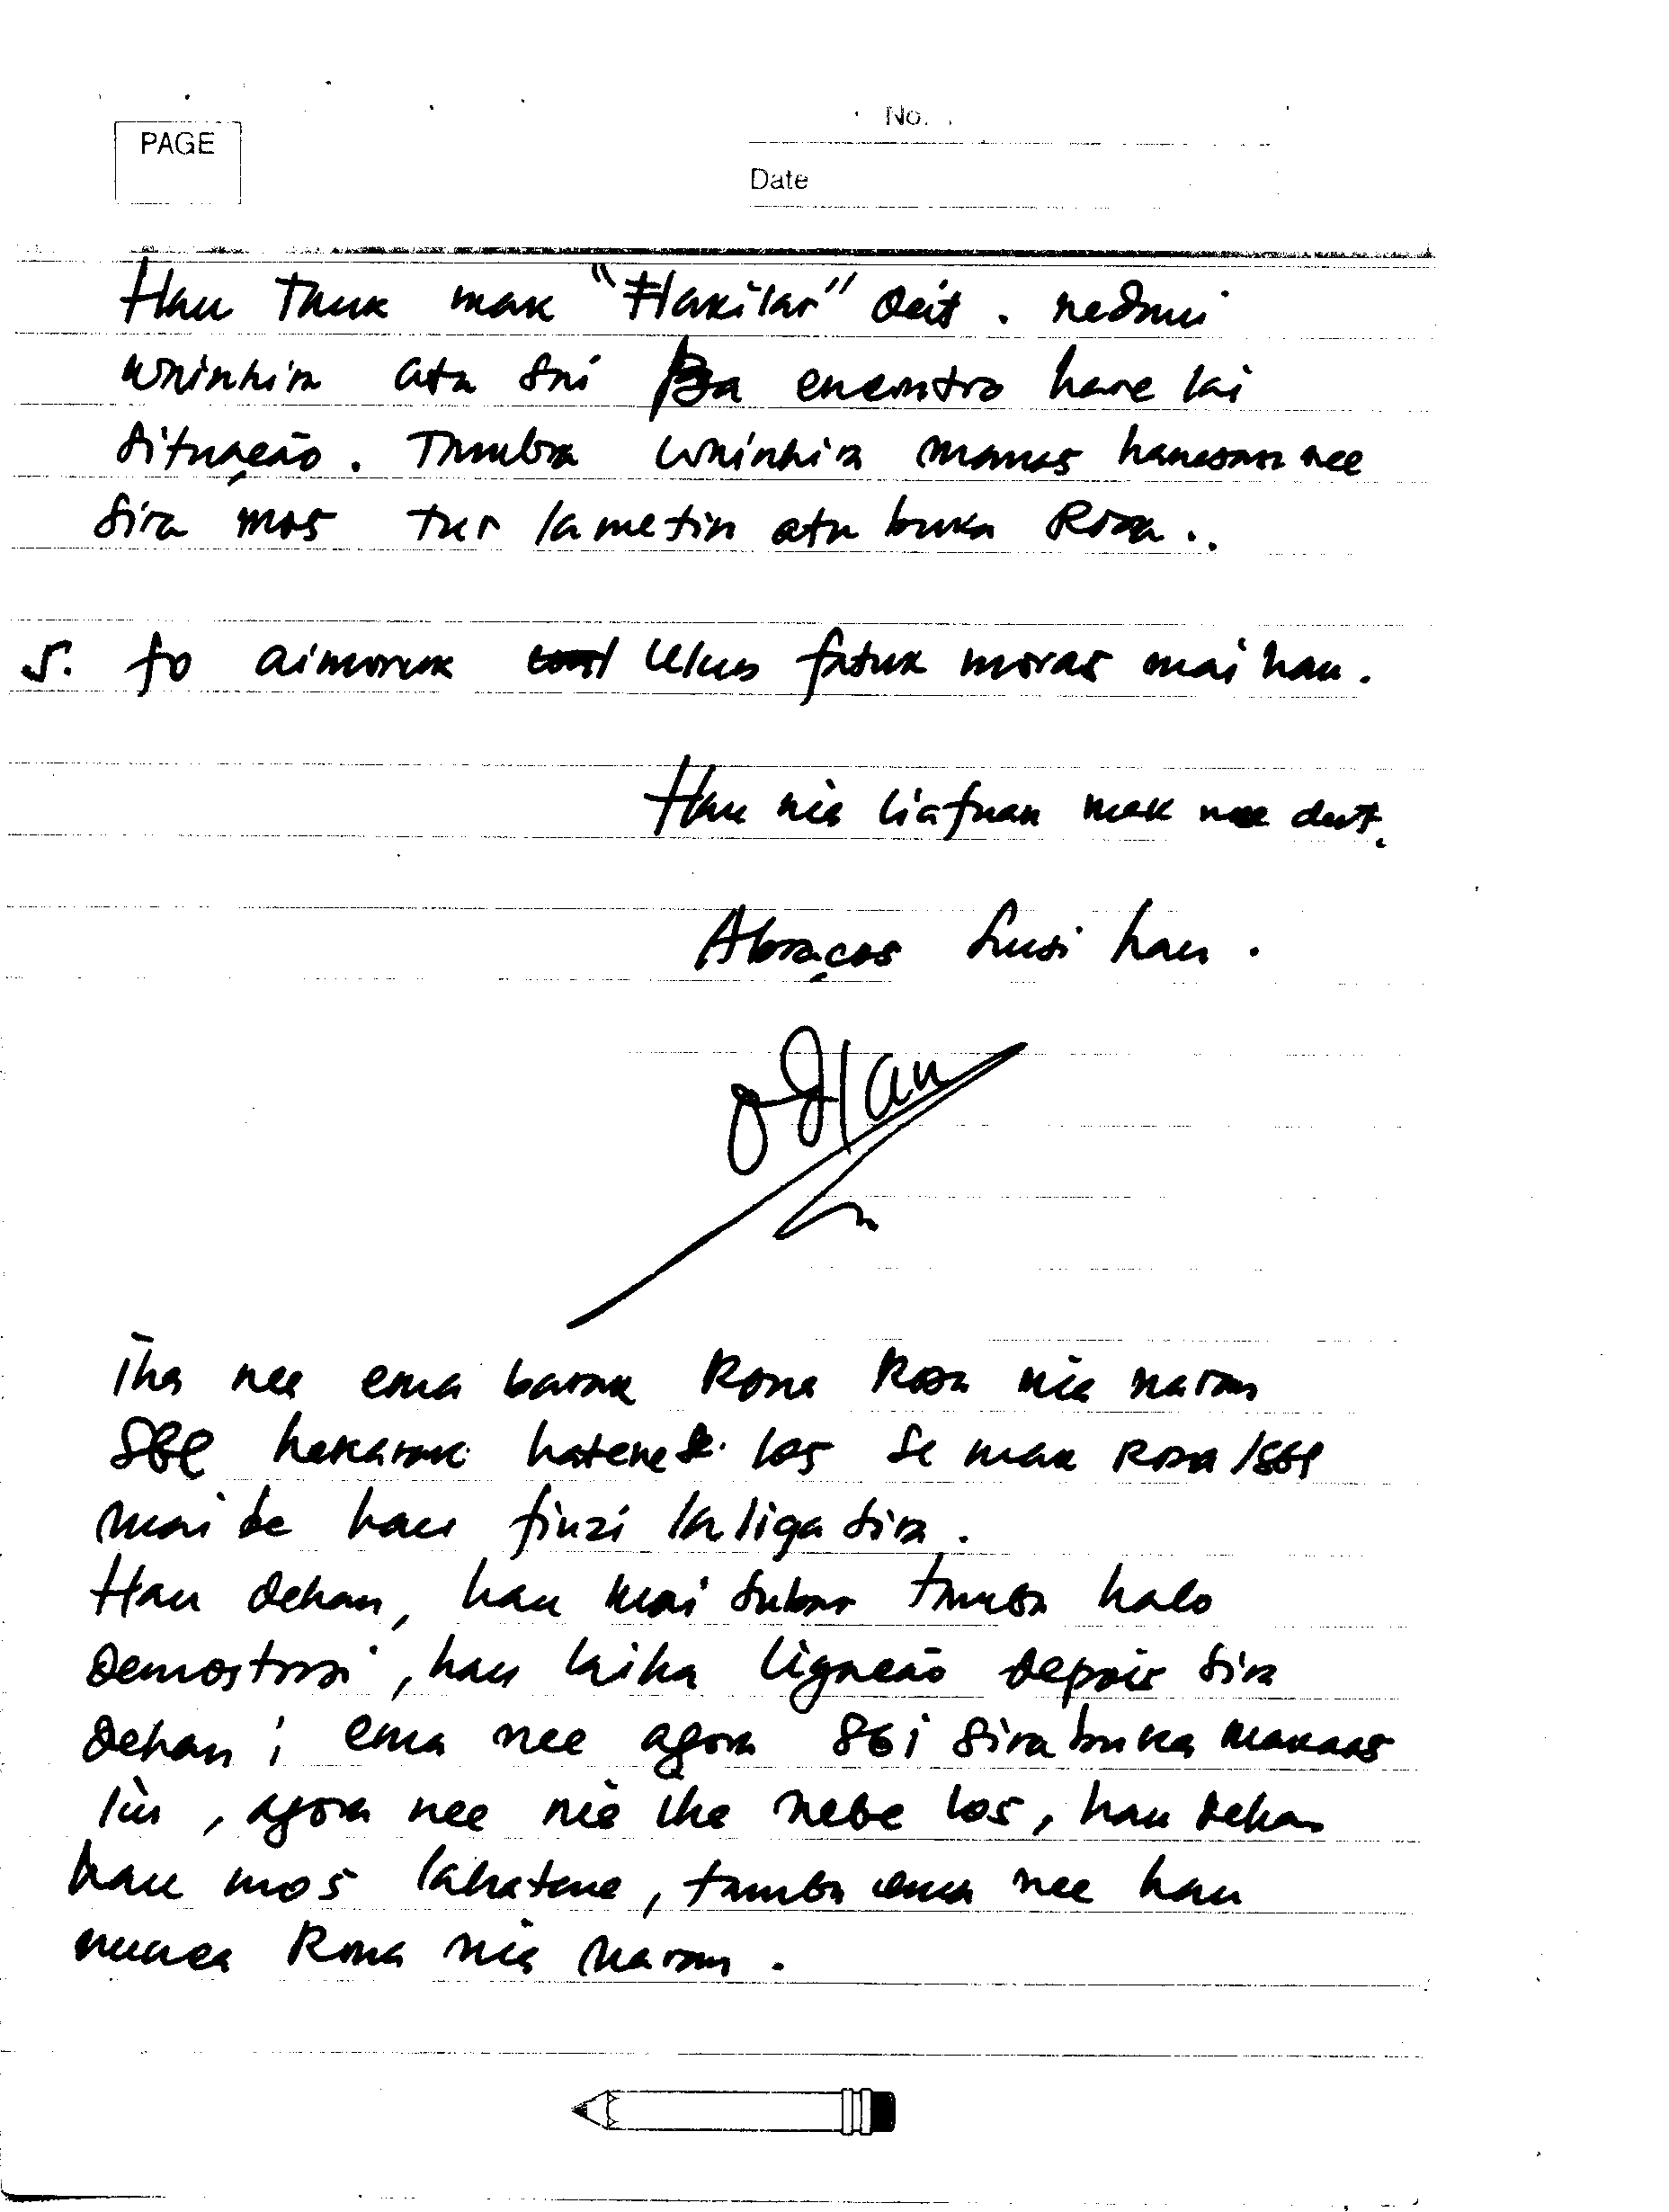 PAGE
No.
Date
Hau Tauk mak "Hakilar" deit. nedmi
Wainhira atu sai Ba encontro hare lai
situação. Tamba Wainhira manas hanesan nee
sira mos tur la metin atu buka Rosa..
5. fo aimoruk Ulun fatuk moras mai hau.
Hau nia liafuan mak nee deit.
Abraços husi hau.
Iha nee ema barak Rona Rosa nia naran
hakarak hatene los se mak Rosa
mai be hau finzi la liga sira.
Hau dehan, hau mai subar tamba halo
demostrasi, hau laiha ligação depois sira
dehan; ema nee agora sira buka makaas
liu, agora nee nia iha nebe los, hau dehan
hau mos lahatene, tamba ema nee hau
nunca Rona nia naran.